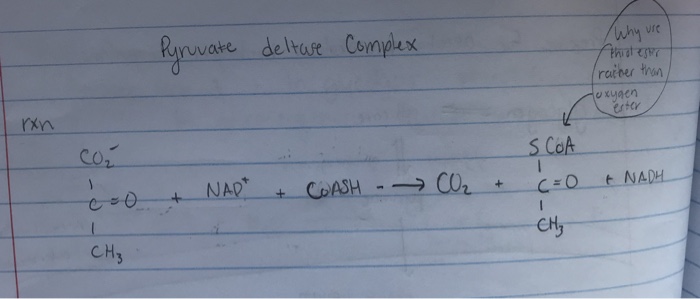 Pyruvate deltase Complex
Why use
thiol ester
rather than
oxygen
ester
rxn
CO₂⁻
C=O + NAD⁺ + CoASH --→ CO₂ + C=O + NADH
CH₃
S CoA
CH₃